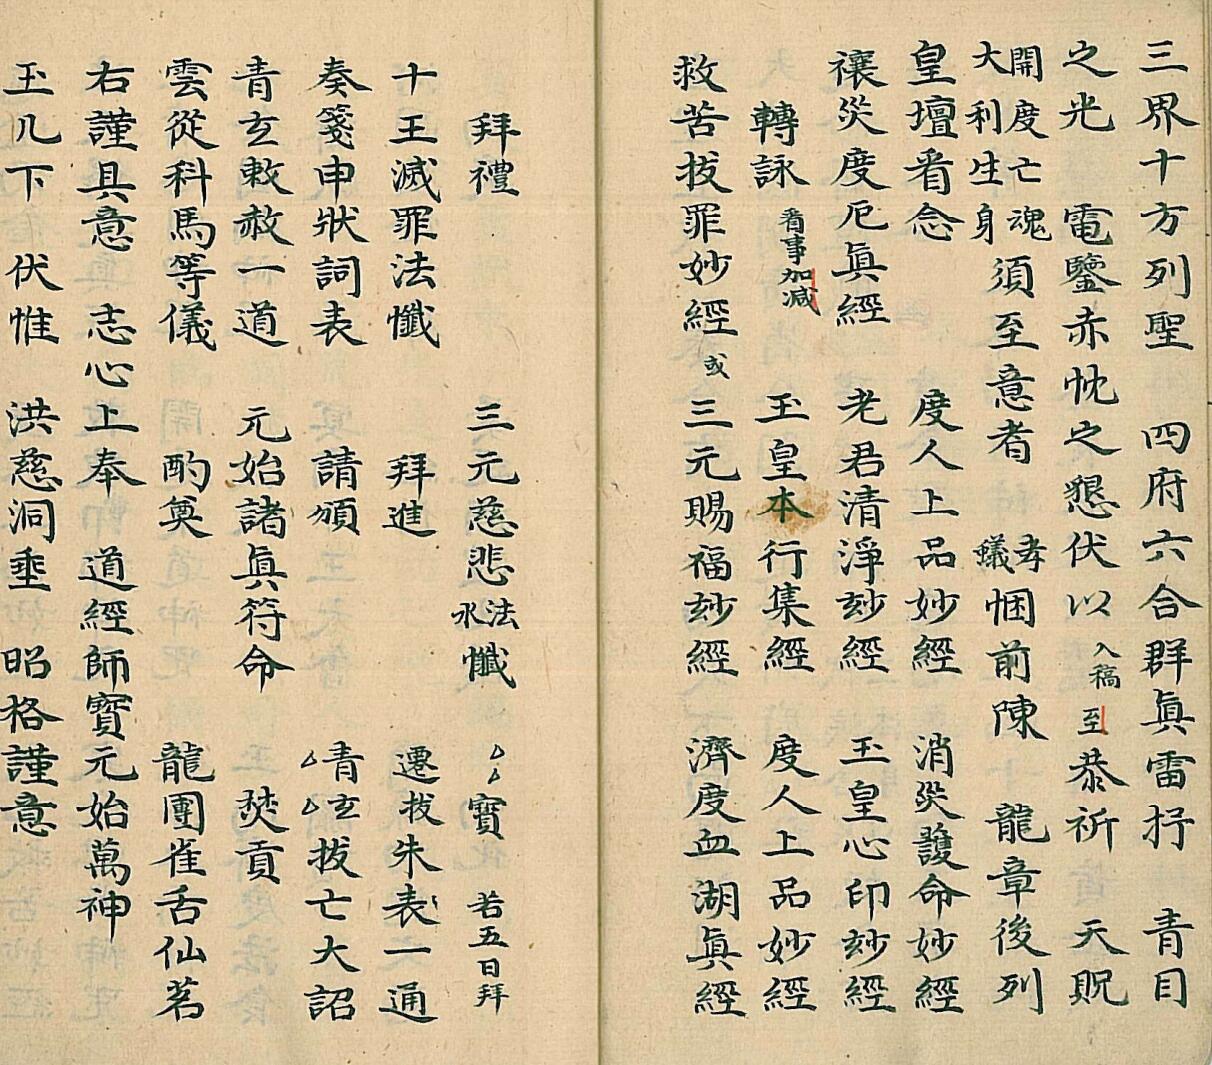 三界十方列聖 四府六合群眞雷抒 青目
之光 電鑒赤忱之懇伏以入稿至恭祈 天貺
開度亡魂大利生身須至意者 孝蟻悃前陳 龍章後列
皇壇看念 度人上品妙經 消災護命妙經
禳災度厄眞經 老君清淨玅經 玉皇心印玅經
轉詠看事加減 玉皇本行集經 度人上品妙經
救苦拔罪妙經或三元賜福玅經 濟度血湖眞經
拜禮 三元慈悲法水懺 〻寶若五日拜
十王滅罪法懺 拜進 遷拔朱表一通
奏箋申狀詞表 請頒 青玄拔亡大詔
青玄敕赦一道 元始諸眞符命 焚貢
雲從科馬等儀 酌奠 龍團雀舌仙茗
右謹具意 志心上奉 道經師寶元始萬神
玉几下 伏惟 洪慈洞垂 昭格謹意